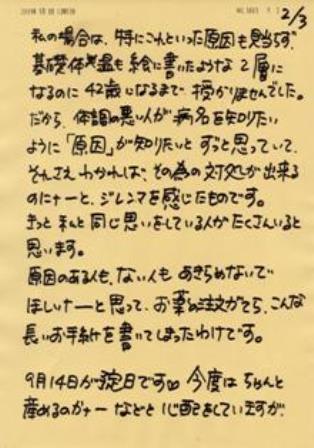 2/3
私の場合は、特にこれといった原因も見当らず、
基礎体温も絵に書いたような2層に
なるのに42歳になるまで授かりませんでした。
だから、体調の悪い人が病名を知りたい
ように「原因」が知りたいとずっと思っていて、
それさえわかれば、その為の対処が出来る
のにナーと、ジレンマを感じたものです。
きっと私と同じ思いをしている人がたくさんいると
思います。
原因のある人も、ない人もあきらめないで
ほしいナーと思って、お薬の注文がてら、こんな
長いお手紙を書いてしまったわけです。
9月14日が淀日です♡ 今度はちゃんと
産めるのかナー などと心配をしていますが、